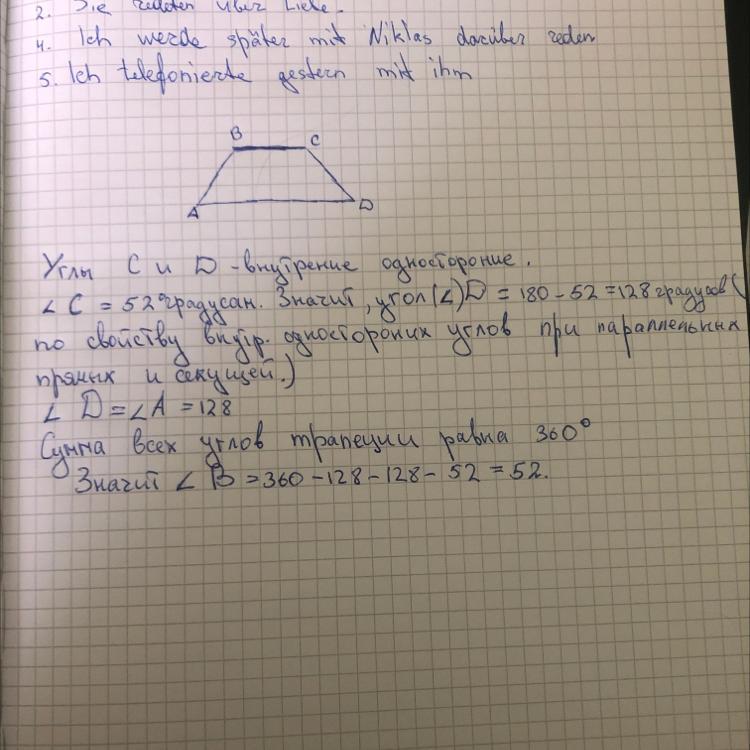 2. Sie redeten über Liebe.
4. Ich werde später mit Niklas darüber reden
5. Ich telefonierte gestern mit ihm
B
C
A
D
Углы C и D - внутрение одностороние.
∠C = 52° градусан. Значит, угол (∠) D = 180 - 52 = 128 градусов (
по свойству внутр. одностороних углов при параллельных
прямых и секущей.)
∠ D = ∠A = 128
Сумма всех углов трапеции равна 360°
Значит ∠ B = 360 - 128 - 128 - 52 = 52.